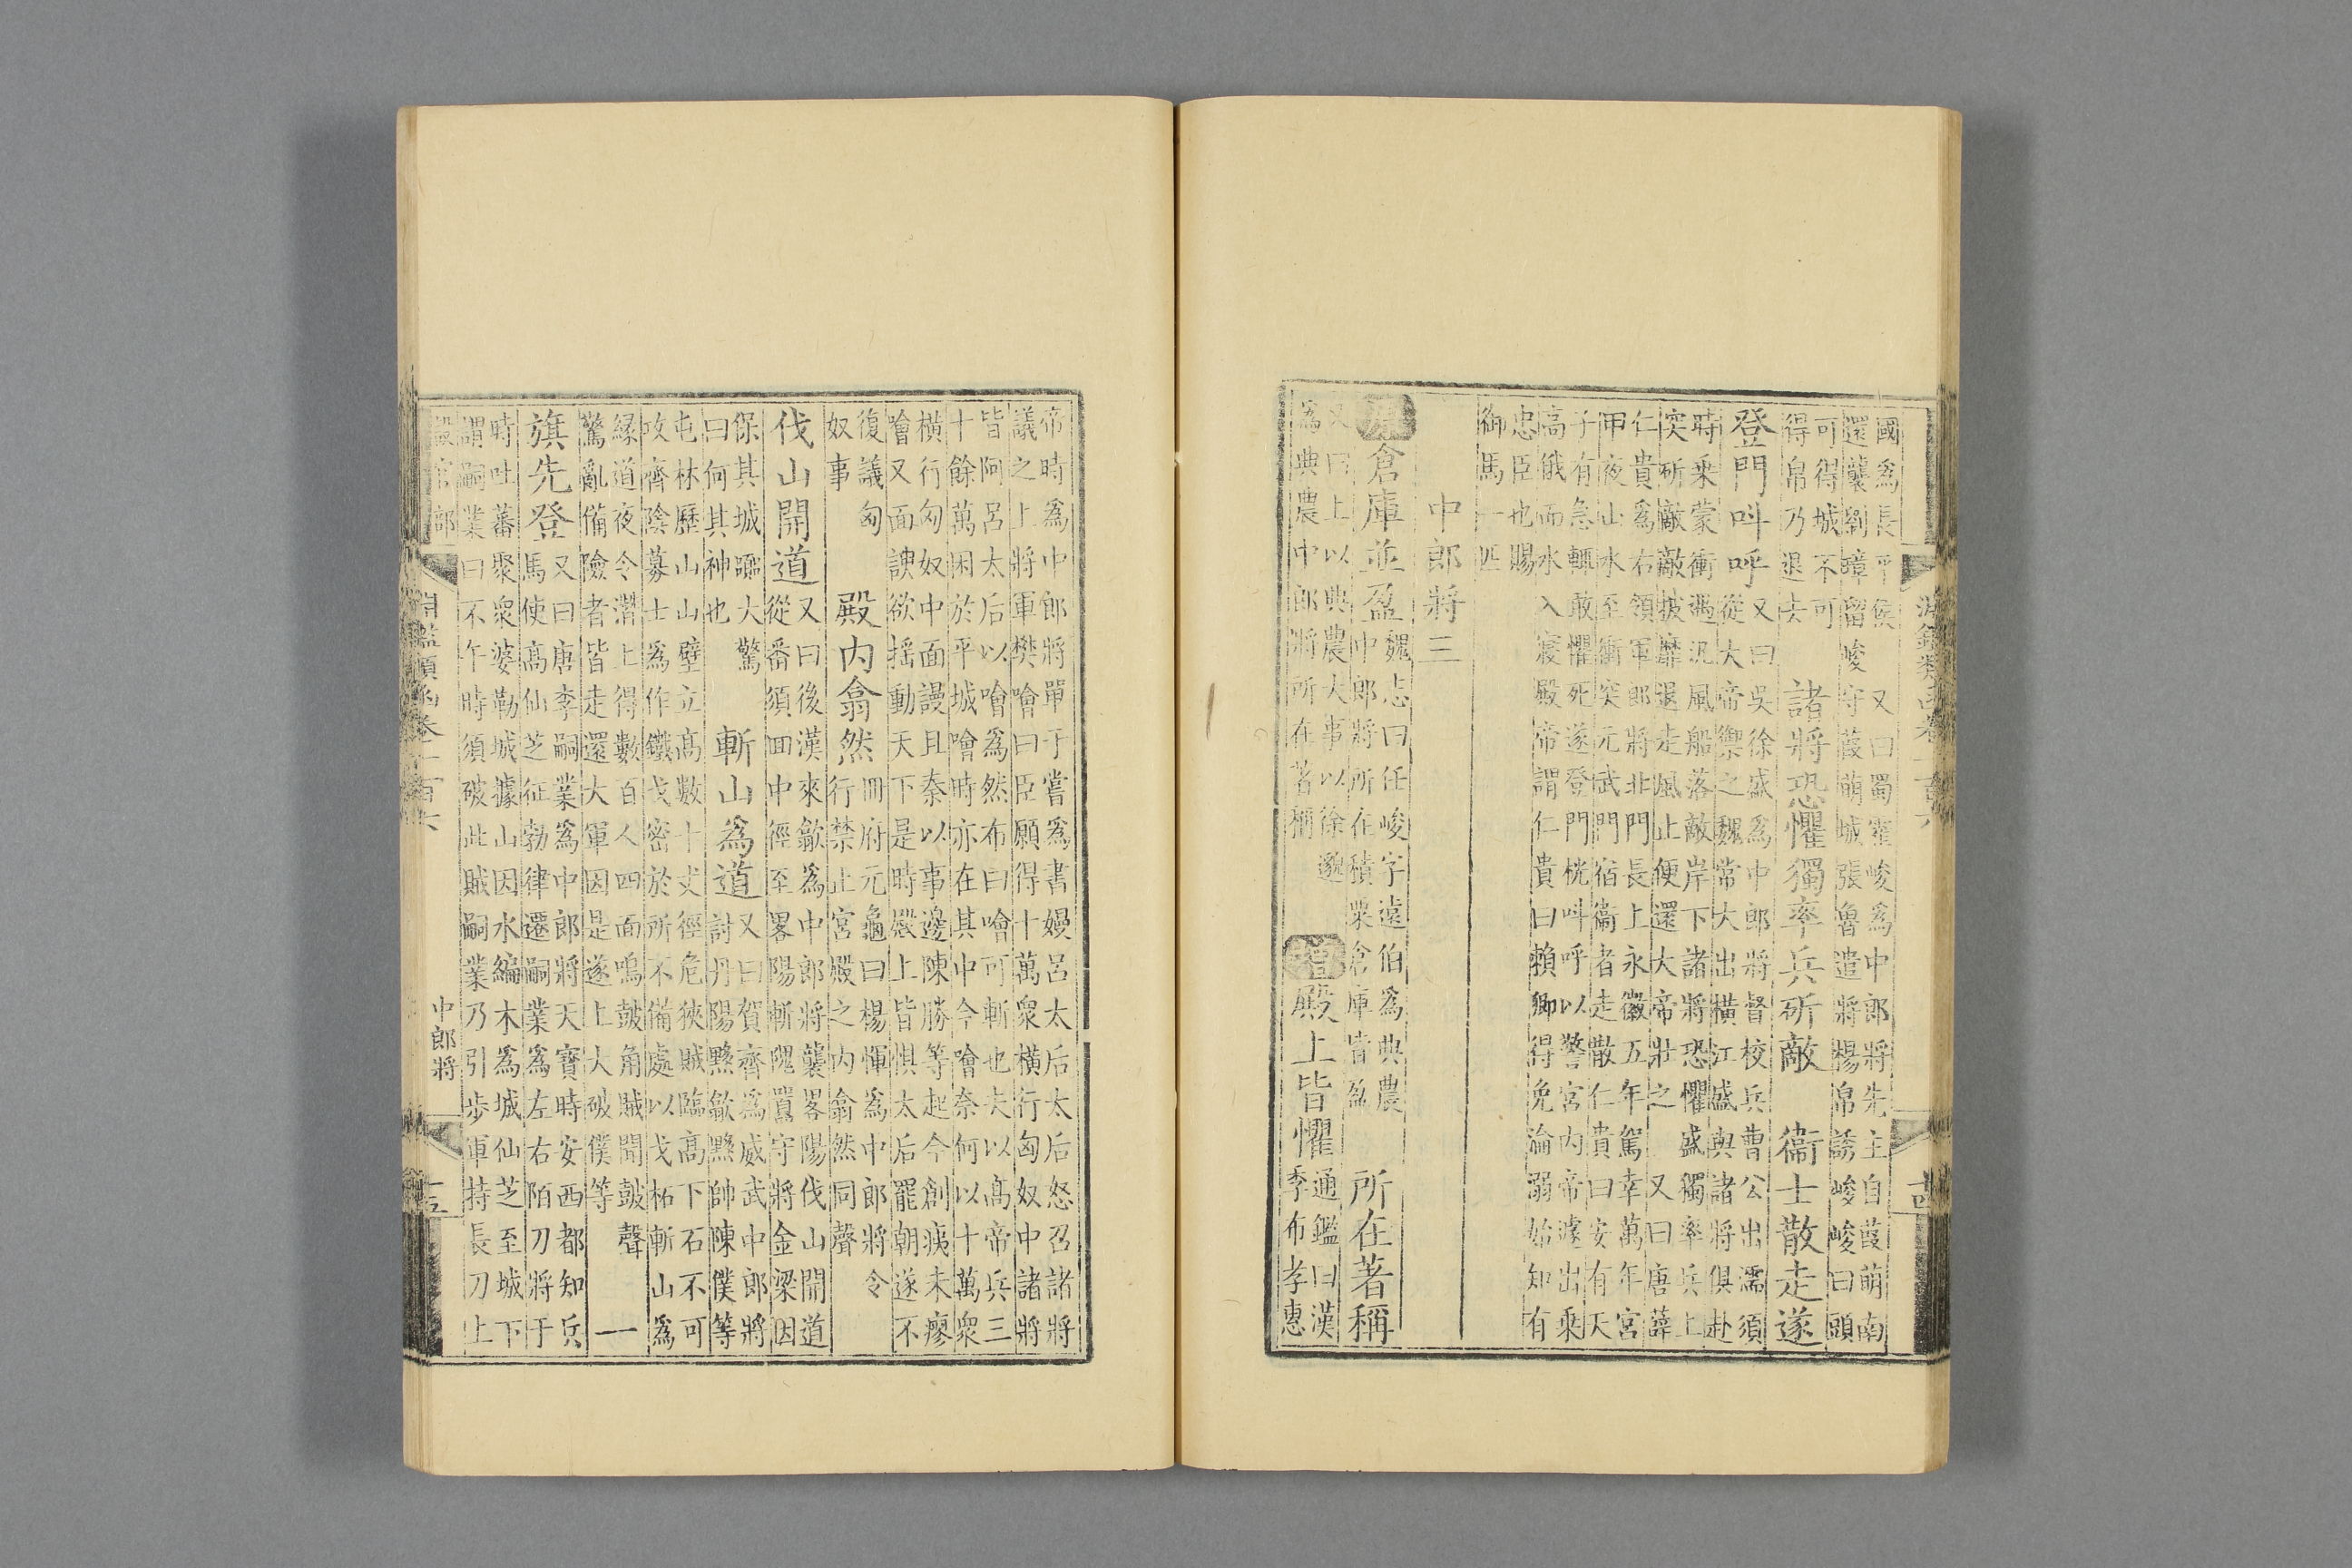 淵鑑類函卷一百六
十四
國爲長平侯　又曰蜀霍峻爲中郎將先主自葭萌南
還襲劉璋留峻守葭萌城張魯遣將楊帛誘峻峻曰頭
可得城不可
得帛乃退去
諸將恐懼獨率兵斫敵　衞士散走遂
登門呌呼
又曰吳徐盛爲中郎將督校兵曹公出濡須
從大帝禦之魏常大出橫江盛與諸將俱赴
時乘蒙衝遇汎風船落敵岸下諸將恐懼盛獨率兵上
突斫敵敵披靡還走風止便還大帝壯之　又曰唐薛
仁貴爲右領軍郎將北門長上永徽五年駕幸萬年宮
甲夜山水至衝突元武門宿衞者走散仁貴曰安有天
子有急輒敢懼死遂登門桄呌呼以警宮內帝遽出乘
高俄而水入寢殿帝謂仁貴曰賴卿得免淪溺始知有
忠臣也賜
御馬一匹
中郎將三
原倉庫並盈
魏志曰任峻字遠伯爲典農
中郎將所在積粟倉庫皆盈
所在著稱
又曰上以典農大事以徐邈
爲典農中郎將所在著稱
增殿上皆懼
通鑑曰漢
季布孝惠
帝時爲中郎將單于嘗爲書嫚呂太后太后怒召諸將
議之上將軍樊噲曰臣願得十萬衆橫行匈奴中諸將
皆阿呂太后以噲爲然布曰噲可斬也夫以高帝兵三
十餘萬困於平城噲時亦在其中今噲奈何以十萬衆
橫行匈奴中面謾且秦以事邊陳勝等起今創痍未瘳
噲又面諛欲搖動天下是時殿上皆惧太后罷朝遂不
復議匈
奴事
殿內翕然
冊府元龜曰楊惲爲中郎將令
行禁止宮殿之內翕然同聲
伐山開道
又曰後漢來歙爲中郎將襲畧陽伐山開道
從番須回中徑至畧陽斬隗囂守將金梁因
保其城囂大驚
曰何其神也
斬山爲道
又曰賀齊爲威武中郎將
討丹陽黟歙黟帥陳僕等
屯林歷山山壁立高數十丈徑危狹賊臨高下石不可
攻齊陰募士爲作鐵戈密於所不備處以戈柘斬山爲
緣道夜令潛上得數百人四面鳴皷角賊聞皷聲
驚亂備險者皆走還大軍因是遂上大破僕等
一
旗先登
又曰唐李嗣業爲中郎將天寶時安西都知兵
馬使高仙芝征勃律遷嗣業爲左右陌刀將于
時吐蕃聚衆娑勒城據山因水編木爲城仙芝至城下
謂嗣業曰不午時須破此賊嗣業乃引步軍持長刀上
設官部
淵鑑類函卷一百六
中郎將
十五